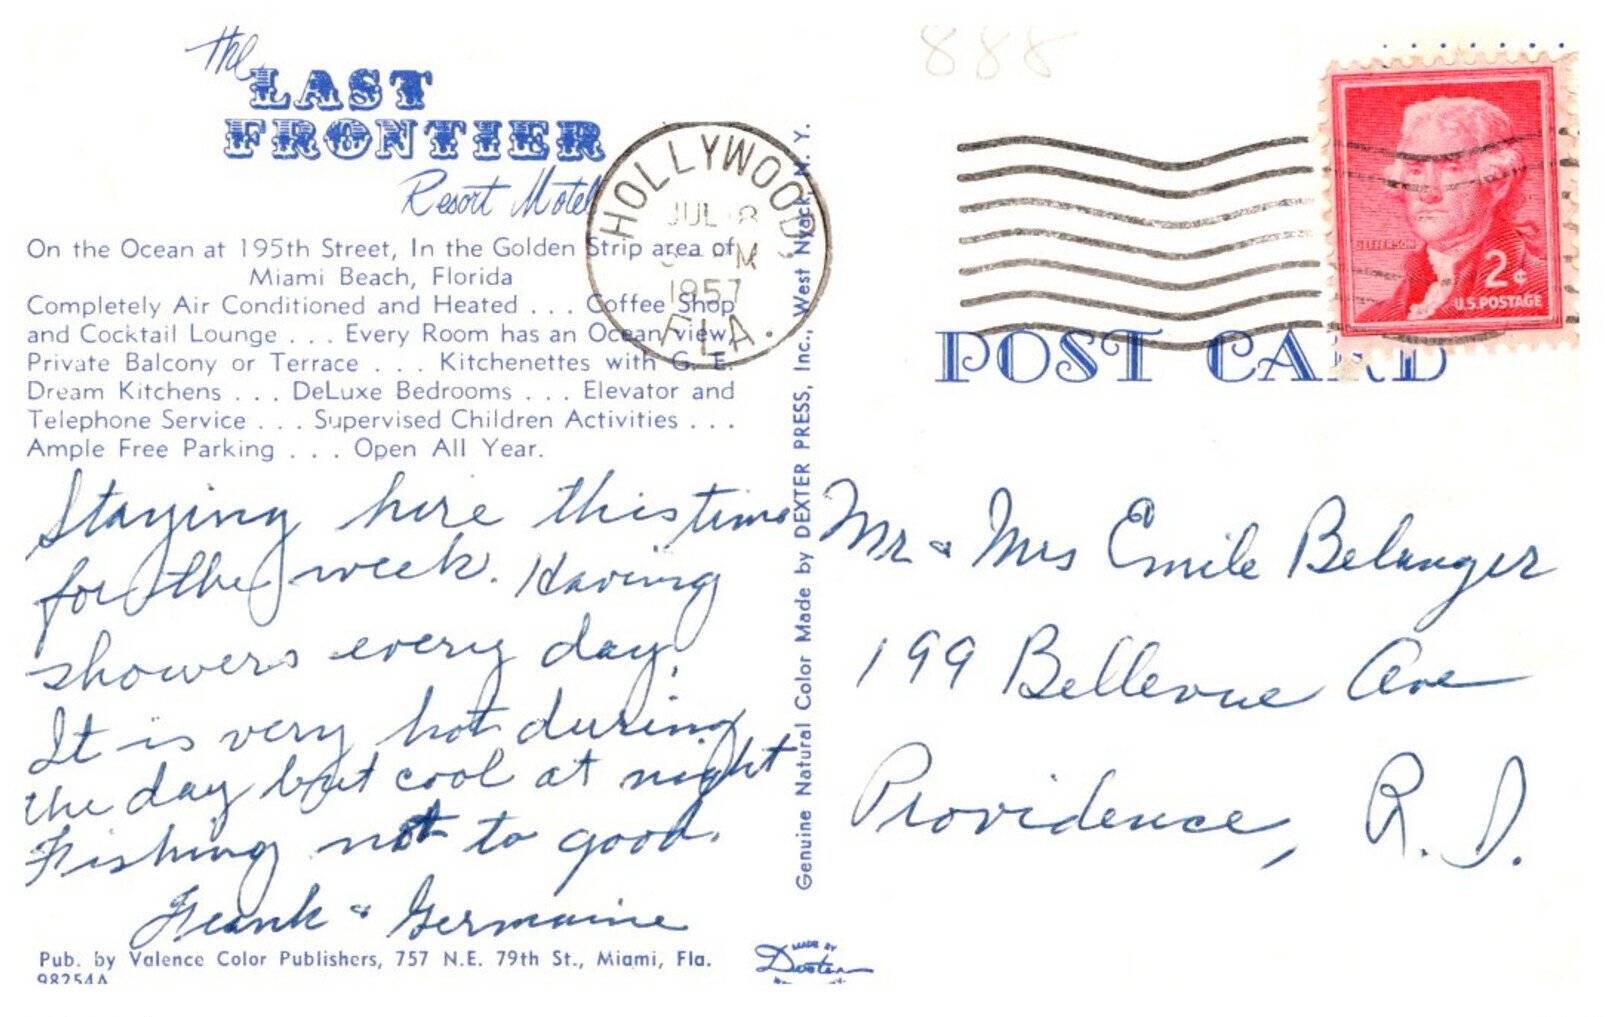 The
LAST
FRONTIER
Resort Motel
On the Ocean at 195th Street, In the Golden Strip area of
Miami Beach, Florida
Completely Air Conditioned and Heated . . . Coffee Shop
and Cocktail Lounge . . . Every Room has an Ocean view,
Private Balcony or Terrace . . . Kitchenettes with G. E.
Dream Kitchens . . . DeLuxe Bedrooms . . . Elevator and
Telephone Service . . . Supervised Children Activities . . .
Ample Free Parking . . . Open All Year.
Staying here this time
for the week. Having
showers every day.
It is very hot during
the day but cool at night
Fishing not to good.
Frank & Germaine
Pub. by Valence Color Publishers, 757 N.E. 79th St., Miami, Fla.
98254A
HOLLYWOOD
JUL 8
M
1957
FLA.
Genuine Natural Color Made by DEXTER PRESS, Inc., West Nyack, N. Y.
MADE BY
Dexter
888
JEFFERSON
2¢
U.S. POSTAGE
POST CARD
Mr & Mrs Emile Belanger
199 Bellevue Ave
Providence, R. I.